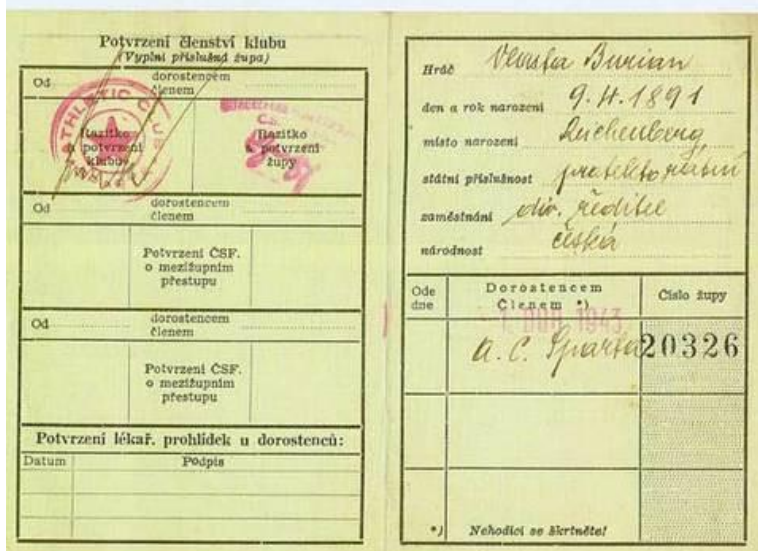 Potvrzení členství klubu
(Vyplní příslušná župa)
Od dorostencem
členem
ATHLETIC CLUB
Razítko
a potvrzení
klubu
Razítko
a potvrzení
župy
Od dorostencem
členem
Potvrzení ČSF.
o mezižupním
přestupu
Od dorostencem
členem
Potvrzení ČSF.
o mezižupním
přestupu
Potvrzení lékař. prohlídek u dorostenců:
Datum Podpis
Hráč Vlasta Burian
den a rok narození 9. 4. 1891
místo narození Reichenberg
státní příslušnost
zaměstnání div. ředitel
národnost česká
Ode
dne
Dorostencem
Členem *)
Číslo župy
1943
A. C. Sparta 20326
*) Nehodící se škrtněte!